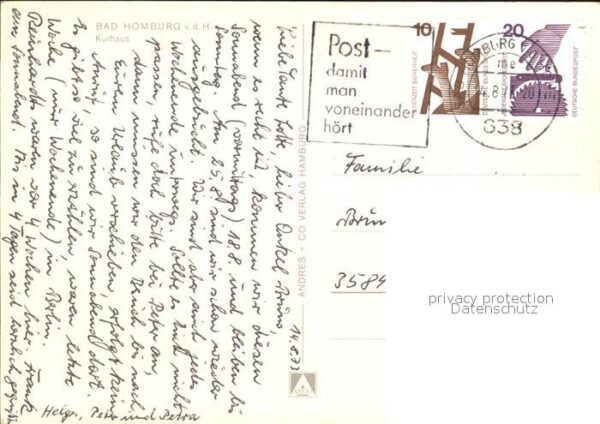 BAD HOMBURG v. d. H.
Kurhaus
14.8.73
Liebe Tante Lotte, lieber Onkel Bruno,
wenn es recht ist kommen wir diesen
Sonnabend (vormittags) 18.8. und bleiben bis
Sonntag. Am 25.8. sind wir schon wieder
ausgebucht. Wir sind aber auch jedes
Wochenende unterwegs. Sollte es Euch nicht
passen ruft doch bitte bei Peter an,
dann müssen wir den Besuch bis nach
Eurem Urlaub verschieben. Erfolgt kein
Anruf so sind wir Sonnabend dort.
Es gibt so viel zu erzählen, waren letzte
Woche (nur Wochenende) in Berlin.
Reinhardts waren vor 4 Wochen hier, Frank
am Sonnabend. Bis in 4 Tagen seid herzlich gegrüßt
Helga, Peter und Petra
ANDRES + CO VERLAG HAMBURG
Post-
damit
man
voneinander
hört
10
20
JEDERZEIT SICHERHEIT
DEUTSCHE BUNDESPOST
638
Familie
Brun
3584
privacy protection
Datenschutz